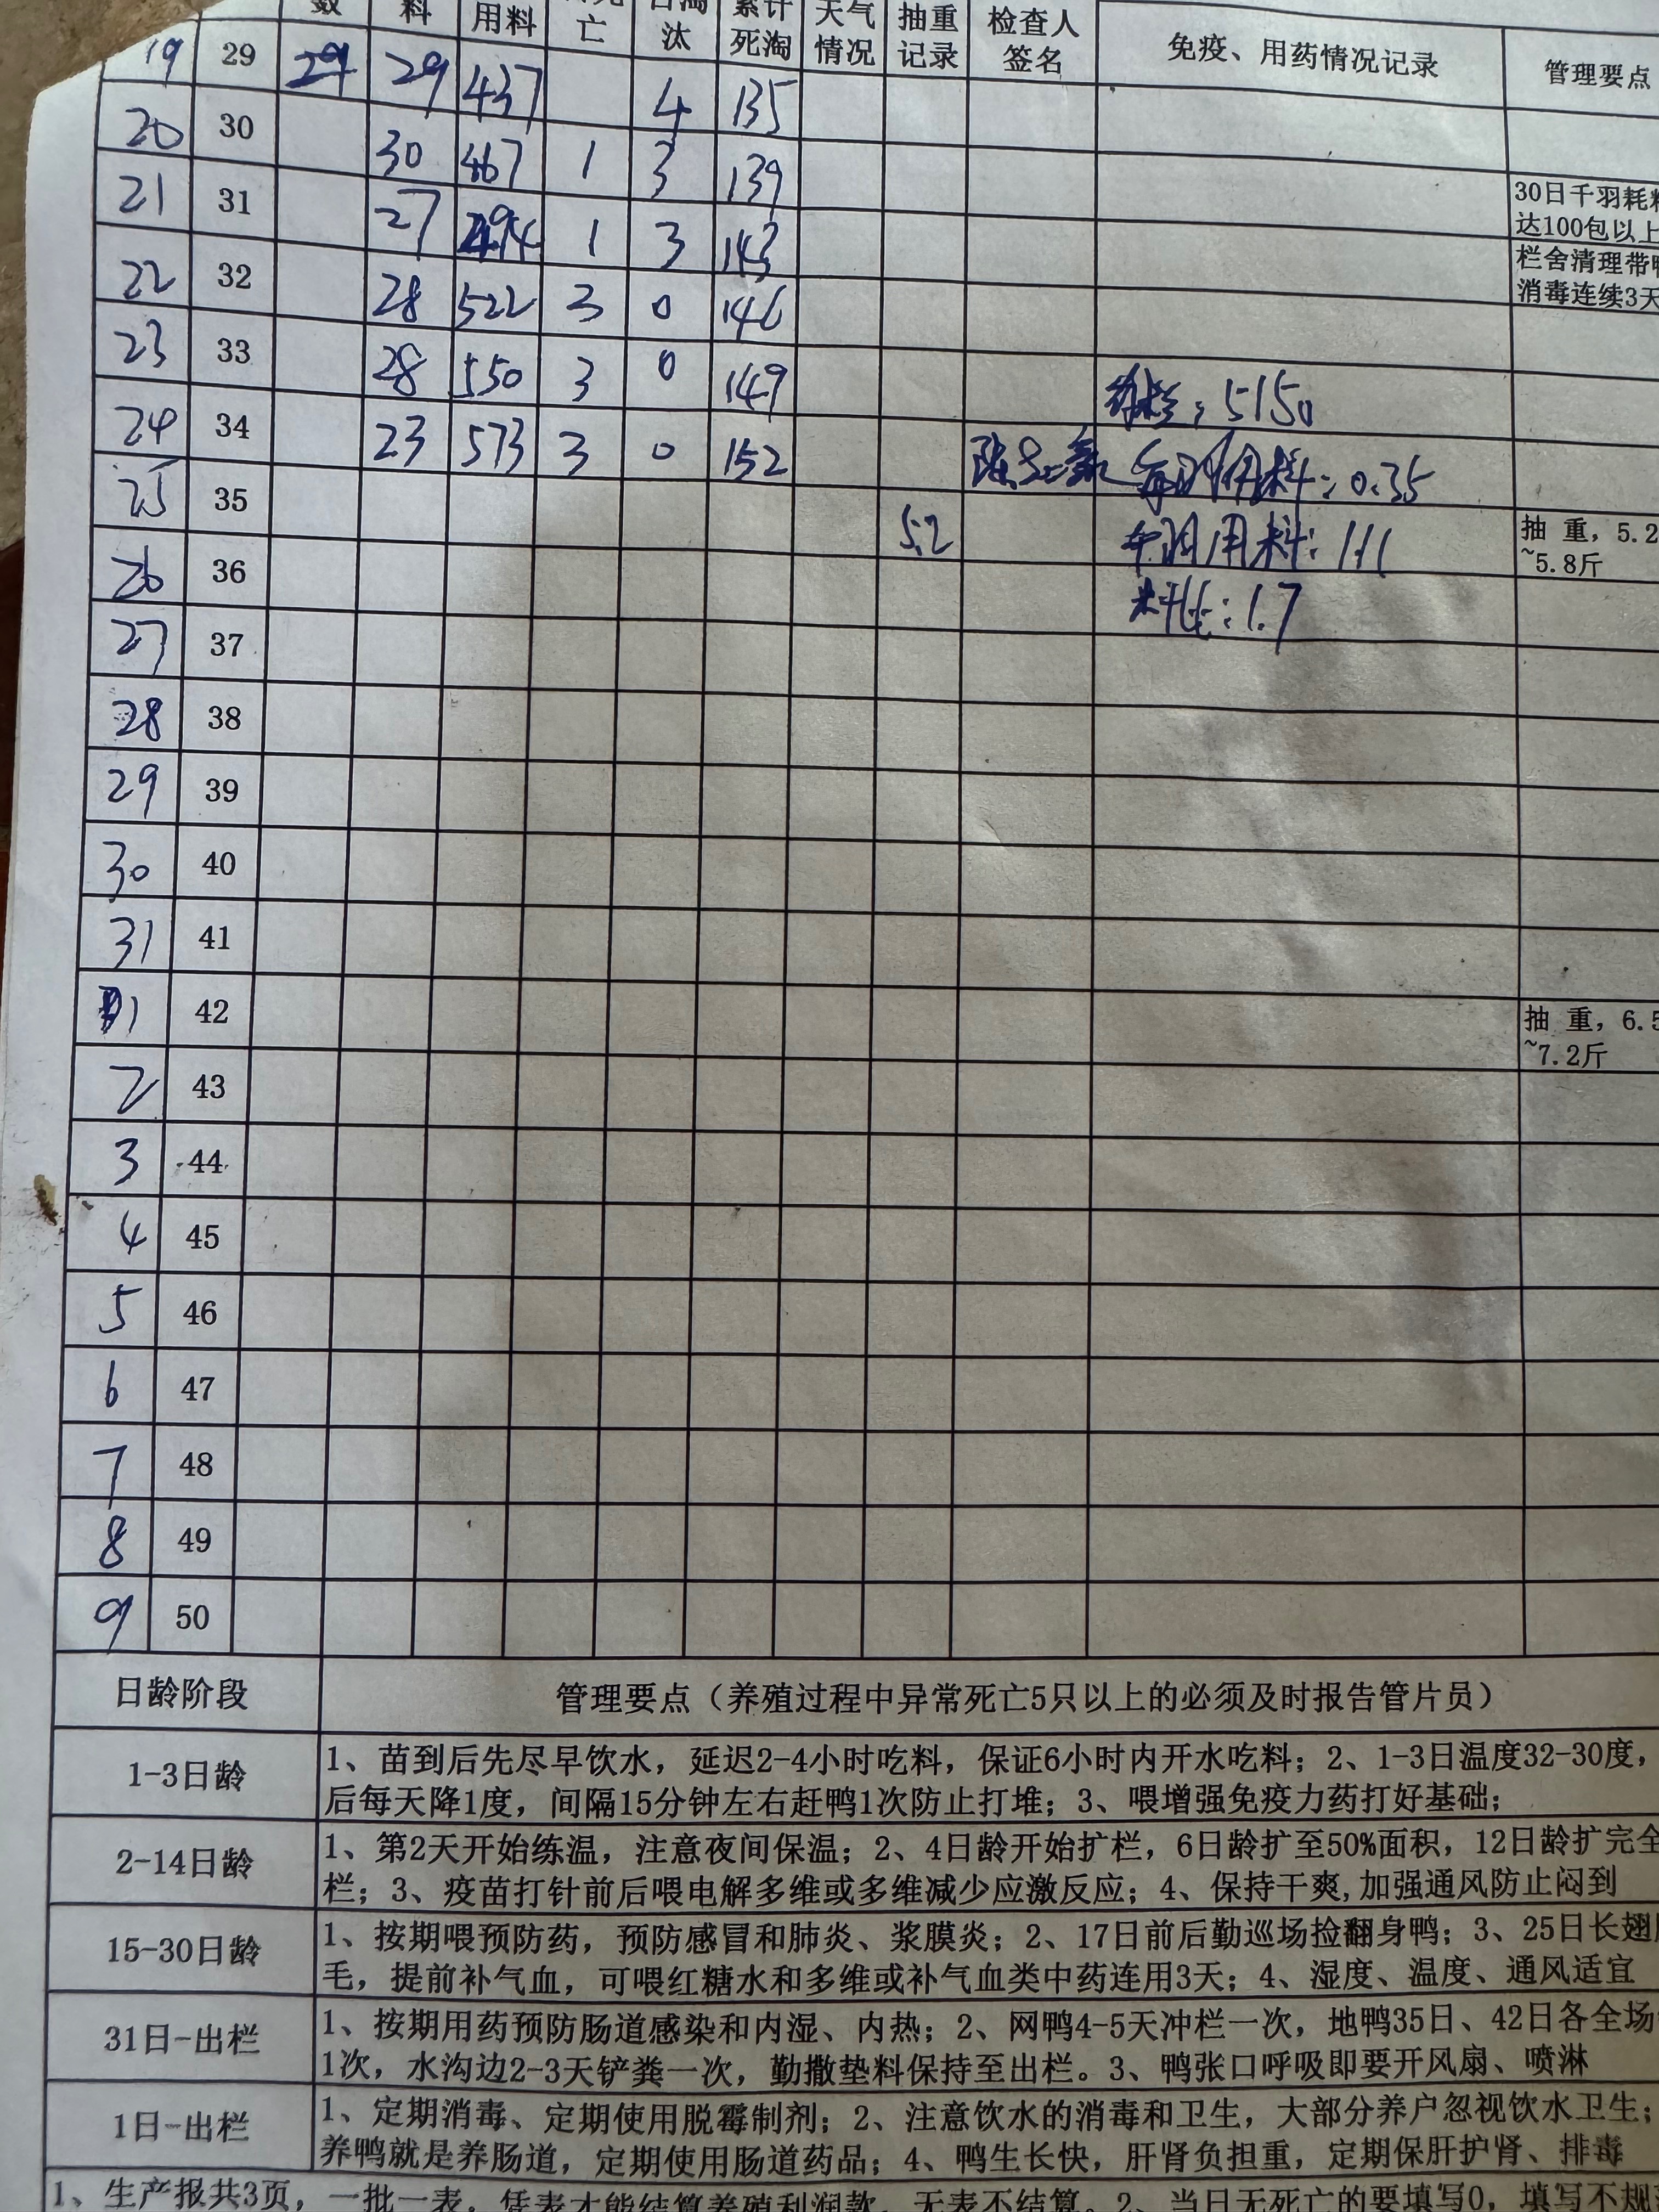 数 料 用料 亡 汰 累计死淘 天气情况 抽重记录 检查人签名 免疫、用药情况记录 管理要点
19 29 29 29 437 4 135
20 30 30 467 1 3 139
21 31 27 494 1 3 143 30日千羽耗料
达100包以上
22 32 28 522 3 0 146 栏舍清理带鸭
消毒连续3天
23 33 28 550 3 0 149 5150
24 34 23 573 3 0 152 每羽用料:0.35
25 35 5.2 千羽用料:111 抽 重，5.2
~5.8斤
26 36 料比:1.7
27 37
28 38
29 39
30 40
31 41
1 42 抽 重，6.5
~7.2斤
2 43
3 44
4 45
5 46
6 47
7 48
8 49
9 50
日龄阶段 管理要点（养殖过程中异常死亡5只以上的必须及时报告管片员）
1-3日龄 1、苗到后先尽早饮水，延迟2-4小时吃料，保证6小时内开水吃料；2、1-3日温度32-30度，
后每天降1度，间隔15分钟左右赶鸭1次防止打堆；3、喂增强免疫力药打好基础；
2-14日龄 1、第2天开始练温，注意夜间保温；2、4日龄开始扩栏，6日龄扩至50%面积，12日龄扩完全
栏；3、疫苗打针前后喂电解多维或多维减少应激反应；4、保持干爽,加强通风防止闷到
15-30日龄 1、按期喂预防药，预防感冒和肺炎、浆膜炎；2、17日前后勤巡场捡翻身鸭；3、25日长翅
毛，提前补气血，可喂红糖水和多维或补气血类中药连用3天；4、湿度、温度、通风适宜
31日-出栏 1、按期用药预防肠道感染和内湿、内热；2、网鸭4-5天冲栏一次，地鸭35日、42日各全场
1次，水沟边2-3天铲粪一次，勤撒垫料保持至出栏。3、鸭张口呼吸即要开风扇、喷淋
1日-出栏 1、定期消毒、定期使用脱霉制剂；2、注意饮水的消毒和卫生，大部分养户忽视饮水卫生；
养鸭就是养肠道，定期使用肠道药品；4、鸭生长快，肝肾负担重，定期保肝护肾、排毒
1、生产报共3页，一批一表，凭表才能结算养殖利润款，无表不结算。2、当日无死亡的要填写0，填写不规